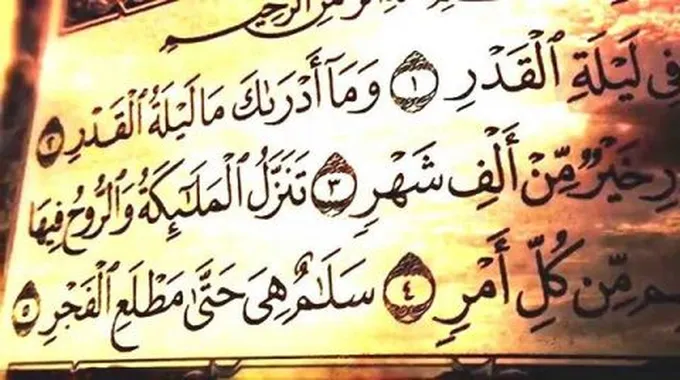 الرحمن الرحيم
فِي لَيْلَةِ ٱلْقَدْرِ ١ وَمَآ أَدْرَىٰكَ مَا لَيْلَةُ ٱلْقَدْرِ ٢
خَيْرٌ مِّنْ أَلْفِ شَهْرٍ ٣ تَنَزَّلُ ٱلْمَلَـٰٓئِكَةُ وَٱلرُّوحُ فِيهَا
مِّن كُلِّ أَمْرٍ ٤ سَلَـٰمٌ هِىَ حَتَّىٰ مَطْلَعِ ٱلْفَجْرِ ٥